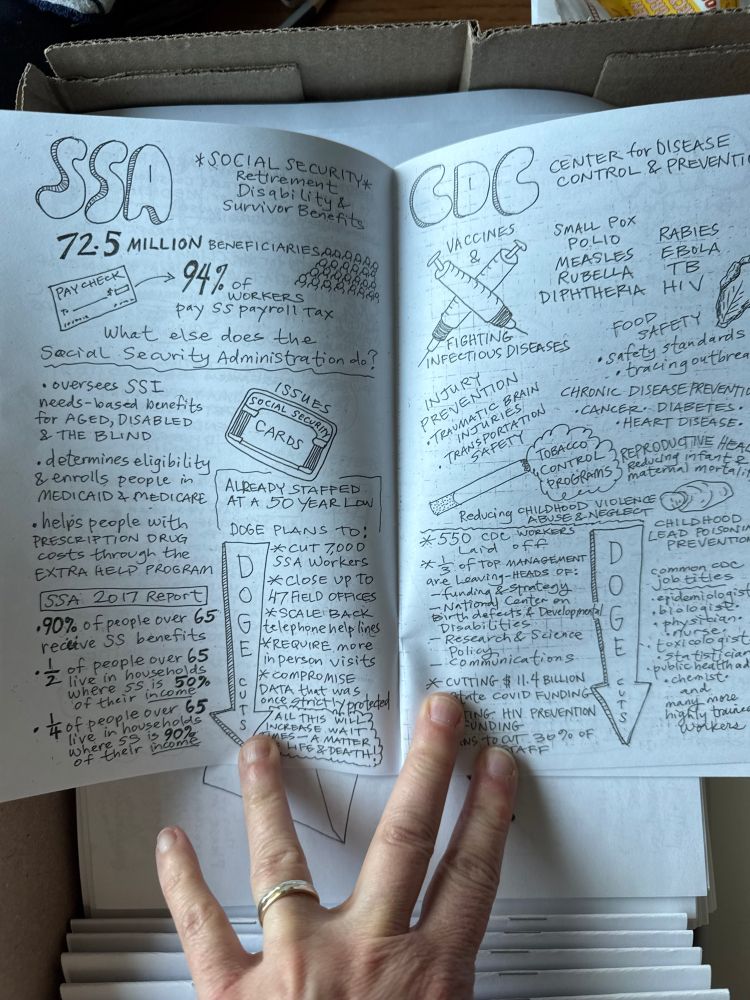 SSA
*SOCIAL SECURITY*
Retirement
Disability &
Survivor Benefits
72.5 MILLION BENEFICIARIES
PAY CHECK
94% of
WORKERS
pay SS payroll Tax
What else does the
Social Security Administration do?
• oversees SSI
needs-based benefits
for AGED, DISABLED
& THE BLIND
• determines eligibility
& enrolls people in
MEDICAID & MEDICARE
• helps people with
PRESCRIPTION DRUG
costs through the
EXTRA HELP PROGRAM
SSA 2017 Report
• 90% of people over 65
receive SS benefits
• 1/2 of people over 65
live in households
where SS is 50%
of their income
• 1/4 of people over 65
live in households
where SS is 90%
of their income
ISSUES
SOCIAL SECURITY
CARDS
ALREADY STAFFED
AT A 50 YEAR LOW
DOGE PLANS TO:
* CUT 7,000
SSA Workers
* CLOSE UP TO
47 FIELD OFFICES
* SCALE BACK
telephone help lines
* REQUIRE more
in person visits
* COMPROMISE
DATA that was
once strictly protected
ALL THIS WILL
INCREASE WAIT
TIMES – A MATTER
LIFE & DEATH!
DOGE CUTS
CDC
CENTER for DISEASE
CONTROL &
VACCINES
&
FIGHTING
INFECTIOUS DISEASES
SMALL POX
POLIO
MEASLES
RUBELLA
DIPHTHERIA
RABIES
EBOLA
TB
HIV
FOOD
SAFETY
• safety standards
• tracing
INJURY
PREVENTION
• TRAUMATIC BRAIN
INJURIES
• TRANSPORTATION
SAFETY
CHRONIC DISEASE
• CANCER • DIABETES •
• HEART DISEASE •
TOBACCO
CONTROL
PROGRAMS
REPRODUCTIVE
Reducing infant &
maternal
Reducing CHILDHOOD VIOLENCE
ABUSE & NEGLECT
CHILDHOOD
LEAD
PREVENTION
* 550 CDC WORKERS
Laid off
* 1/3 of TOP MANAGEMENT
are Leaving - HEADS OF:
– funding & strategy
– National Center on
Birth defects & Developmental
Disabilities
– Research & Science
Policy
– communications
* CUTTING $11.4 BILLION
state COVID FUNDING
HIV PREVENTION
FUNDING
TO CUT 30% OF
STAFF
DOGE CUTS
common CDC
job titles
• epidemiologist
• biologist •
• physician •
• nurse •
toxicologist
• statistician
• public health
• chemist •
and
many more
highly trained
workers